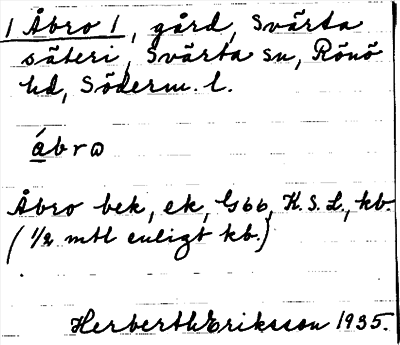 1 Åbro 1, gård, Svärta
säteri, Svärta sn, Rönö
hd, Söderm. l.
åbrɷ
Åbro bek, ek, G66, K.S.L., kb.
(1/2 mtl enligt kb.)
Herbert W Eriksson 1935.